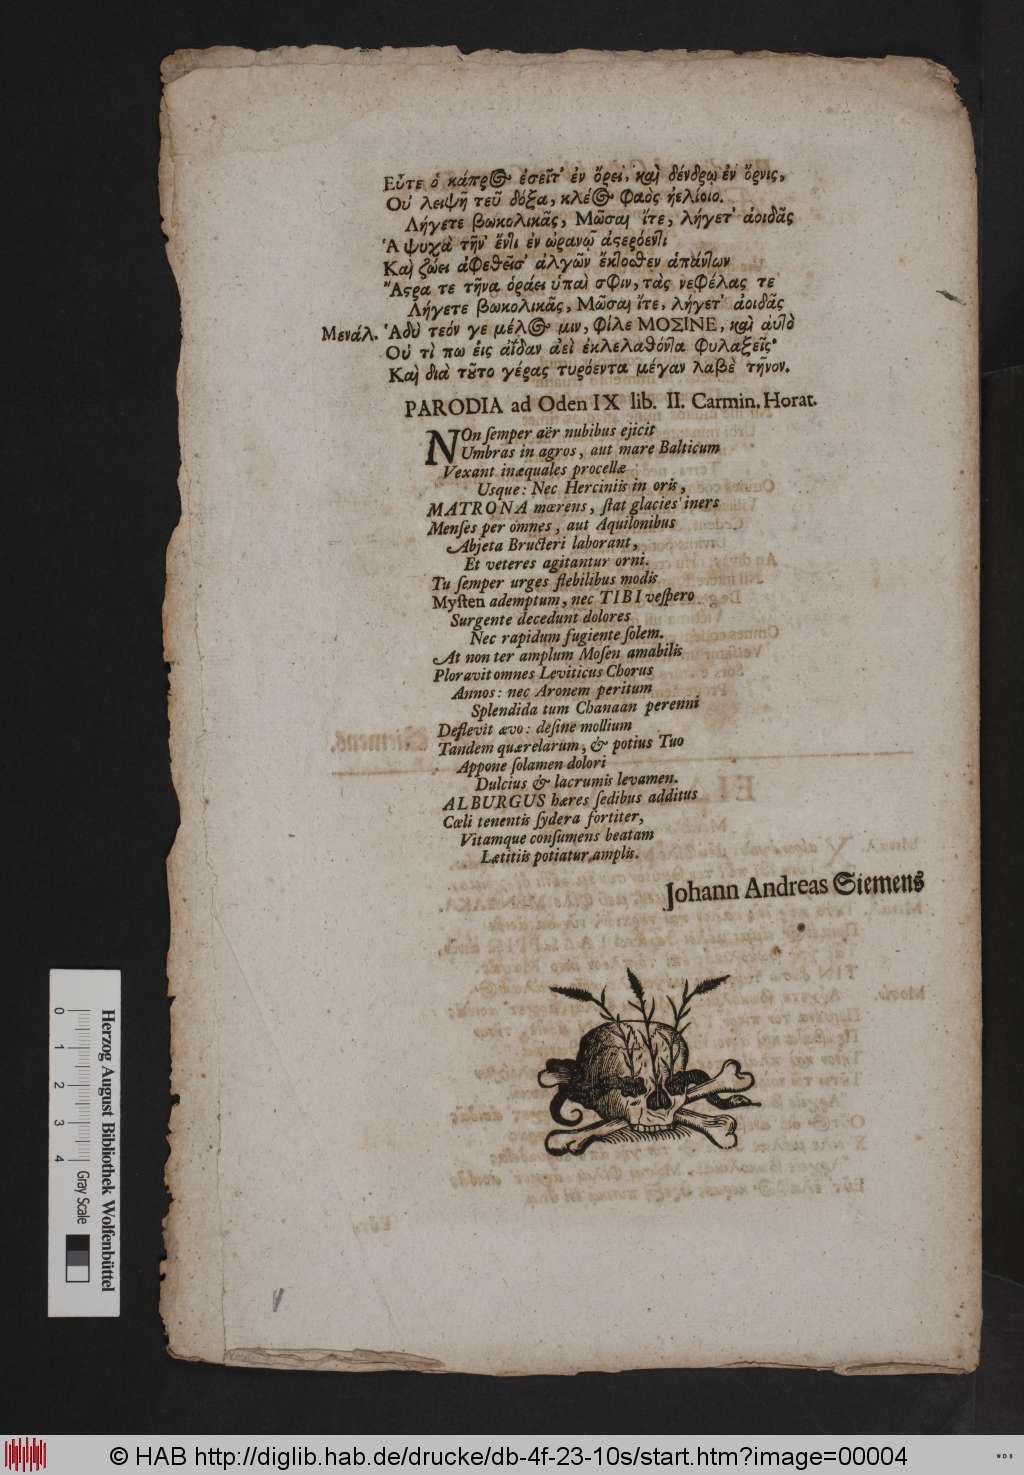 Εὖτε ὁ κάπρος ἐσεῖτ' ἐν ὄρει, καὶ δένδρῳ ἐν ὄρνις,
Οὐ λειψῆ τεῦ δόξα, κλέος φαὸς ἠελίοιο.
Λήγετε βωκολικᾶς, Μῶσαι ἴτε, λήγετ' ἀοιδᾶς
Ἁ ψυχὰ τῆν' ἔντι ἐν ὠρανῷ ἀςερόεντι
Καὶ ζώει ἀφεθεῖσ' ἀλγῶν ἔκτοθεν ἁπάντων
Ἄςρα τε τῆνα ὁράει ὑπαὶ σφιν, τὰς νεφέλας τε
Λήγετε βωκολικᾶς, Μῶσαι ἴτε, λήγετ' ἀοιδᾶς
Μενάλ. Ἁδύ τεόν γε μέλος μιν, φίλε ΜΟΣΙΝΕ, καὶ αὐτὸ
Οὐ τί πω εἰς ἀΐδαν ἀεὶ ἐκλελαθόντα φυλαξεῖς·
Καὶ διὰ τοῦτο γέρας τυρόεντα μέγαν λαβὲ τῆνον.
PARODIA ad Oden IX lib. II. Carmin. Horat.
NOn semper aër nubibus ejicit
Umbras in agros, aut mare Balticum
Vexant inæquales procellæ
Usque: Nec Herciniis in oris,
MATRONA mœrens, stat glacies iners
Menses per omnes, aut Aquilonibus
Abjeta Bructeri laborant,
Et veteres agitantur orni.
Tu semper urges flebilibus modis
Mysten ademptum, nec TIBI vespero
Surgente decedunt dolores
Nec rapidum fugiente solem.
At non ter amplum Mosen amabilis
Ploravit omnes Leviticus Chorus
Annos: nec Aronem peritum
Splendida tum Chanaan perenni
Deflevit ævo: desine mollium
Tandem quærelarum, & potius Tuo
Appone solamen dolori
Dulcius & lacrumis levamen.
ALBURGUS hæres sedibus additus
Cœli tenentis sydera fortiter,
Vitamque consumens beatam
Lætitiis potiatur amplis.
Johann Andreas Siemens
0 1 2 3 4
Herzog August Bibliothek Wolfenbüttel
Gray Scale
© HAB http://diglib.hab.de/drucke/db-4f-23-10s/start.htm?image=00004